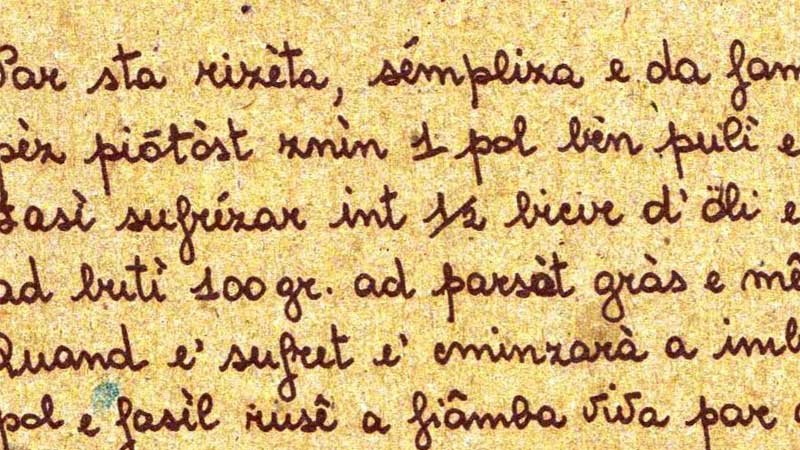 Par sta rizèta, sémpliza e da fam
pèz piôtòst znìn 1 pol bèn pulì e
Fasì sufrézar int 1/2 bicir d' öli e
ad butì 100 gr. ad parsòt gràs e mê
Quand e' sufret e' cminzarà a imb
pol e fasìl rusê a fiâmba viva par